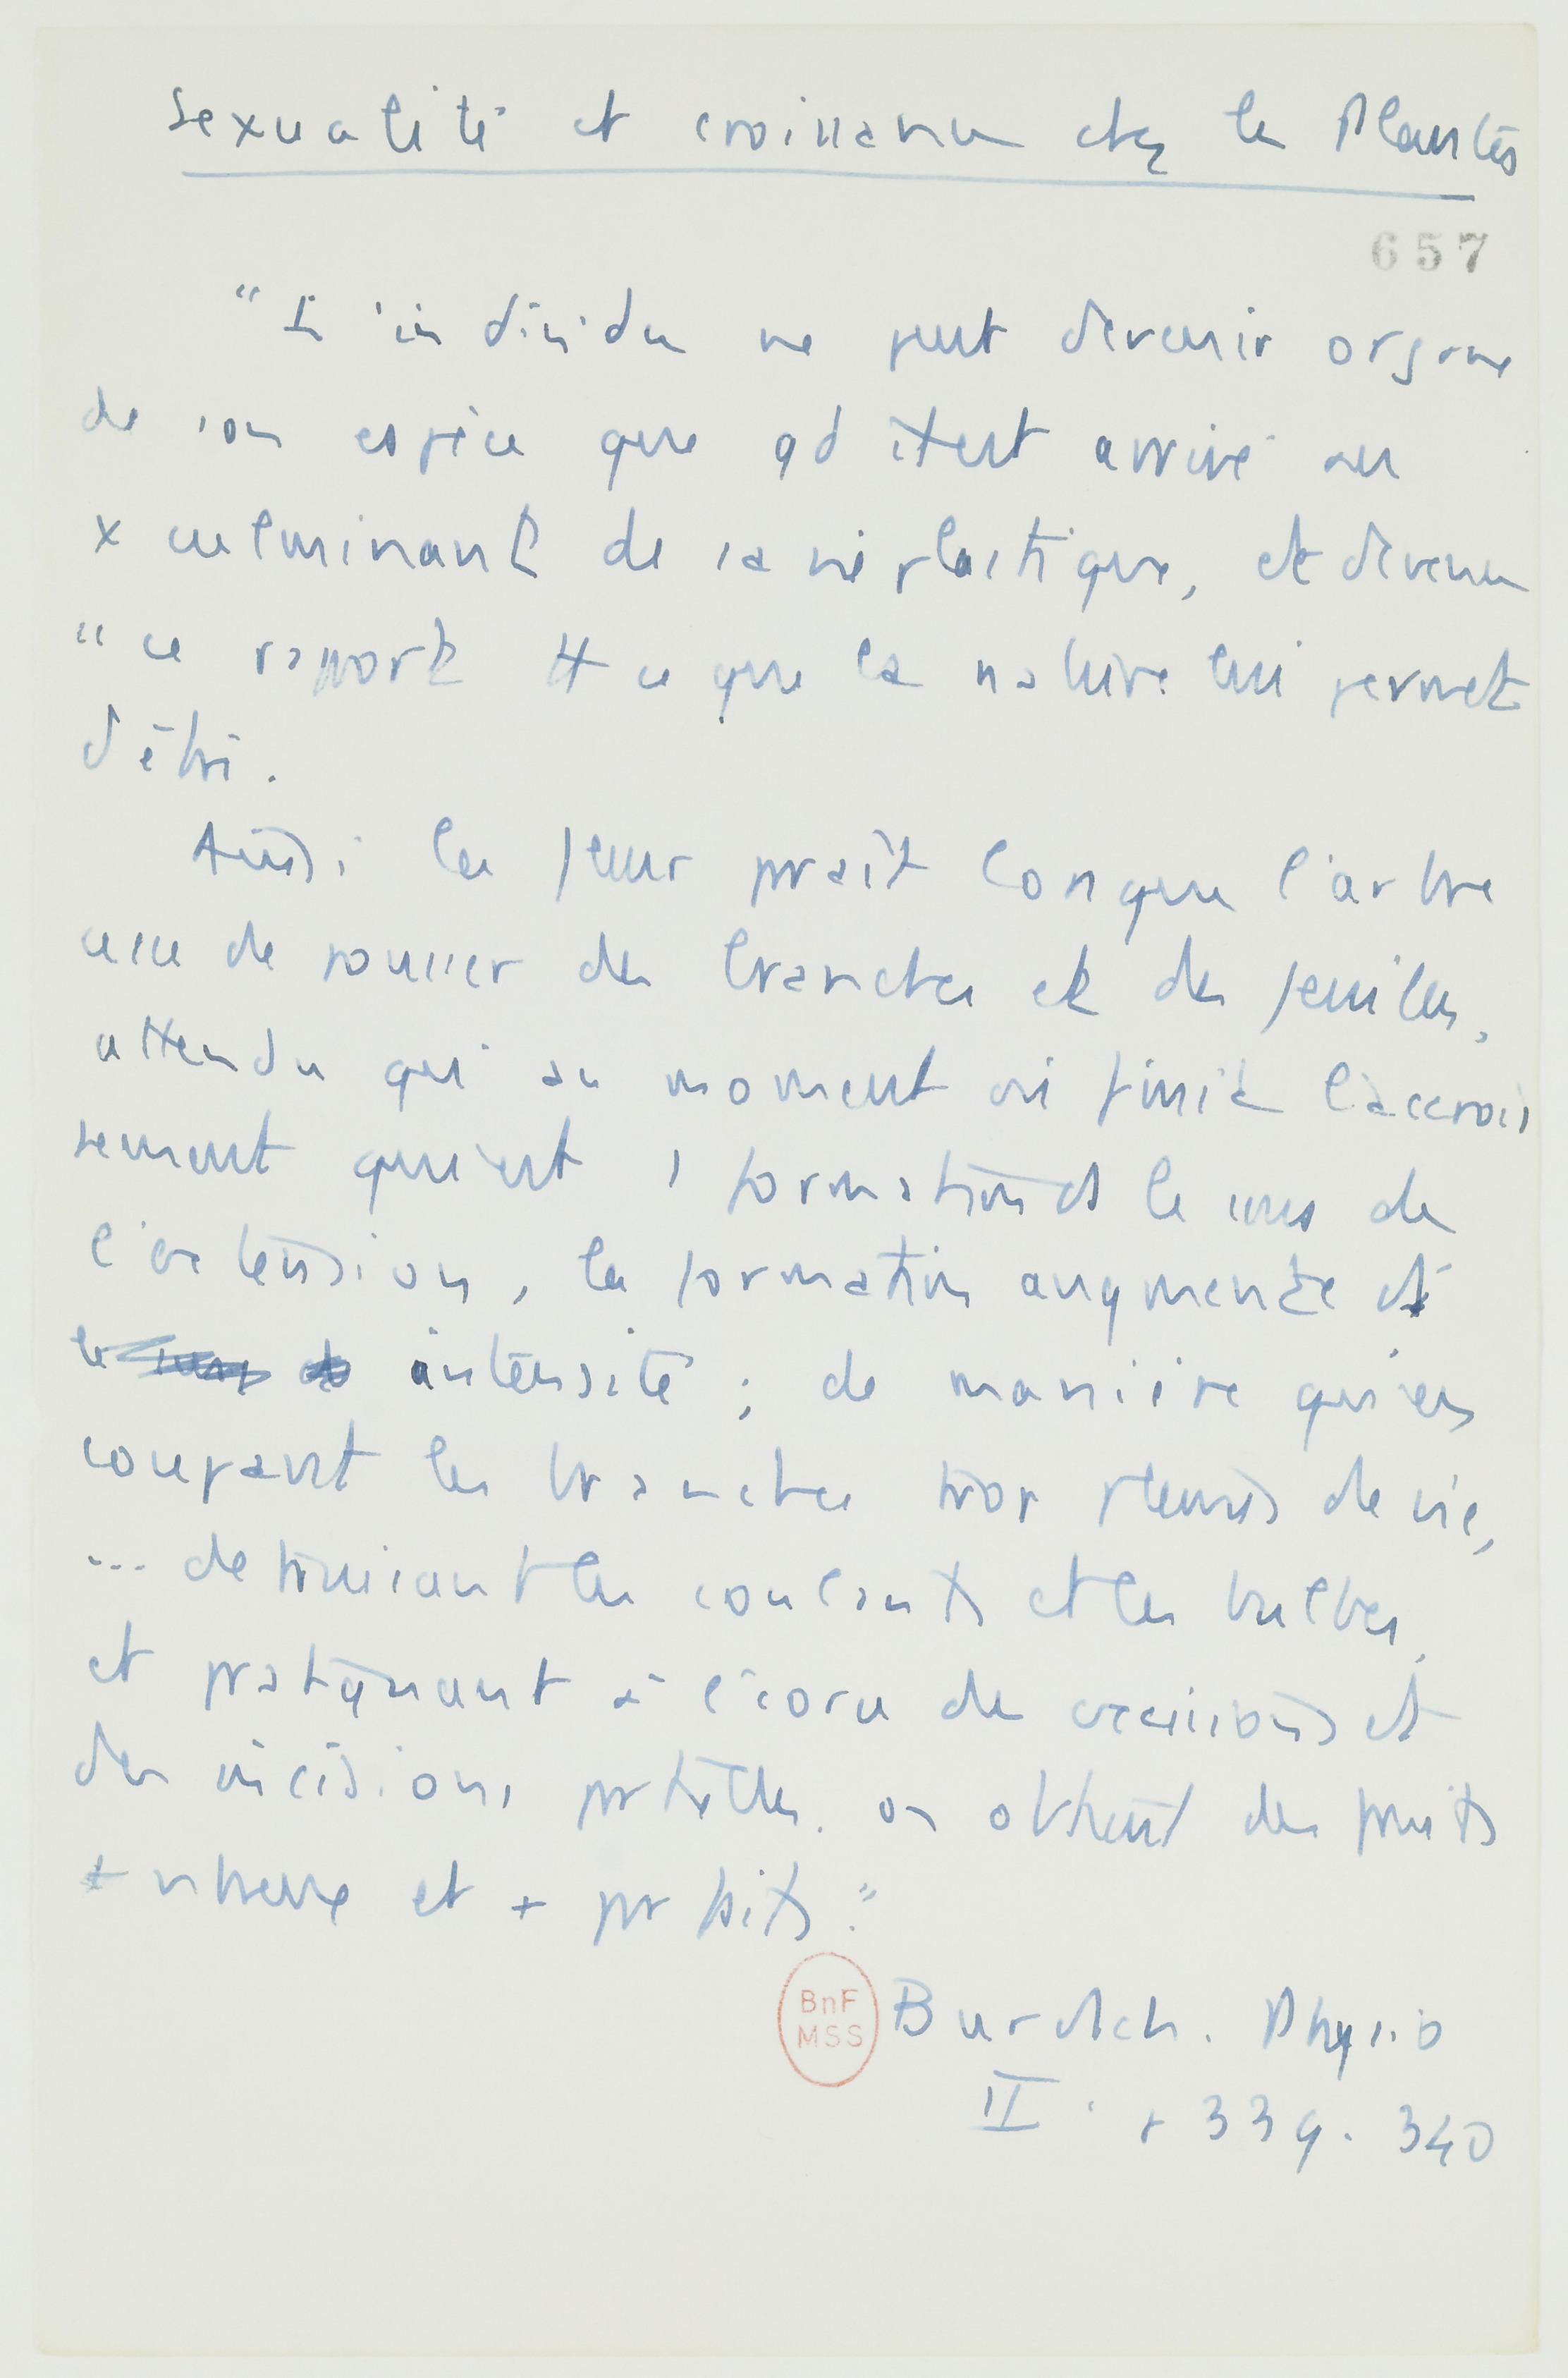 Sexualité et croissance chez les Plantes
657
"L'individu ne peut devenir organe
de son espèce que qd il est arrivé au
x culminant de sa vie plastique, et devenu
"ce rapport tt ce que la nature lui permet
d'être.
Ainsi la fleur paraît lorsque l'arbre
cesse de pousser des branches et des feuilles,
attendu qu'au moment où finit l'accrois
sement qui est 1 formation ds le sens de
l'extension, la formation augmente d'
intensité ; de manière qu'en
coupant les branches trop pleines de vie,
... detruisant les coulants et les bulbes,
et pratiquant à l'écorce des excisions et
des incisions partielles, on obtient des fruits
+ nbreux et + parfaits."
BnF
MSS
Burdach. Physio
II. p 339. 340